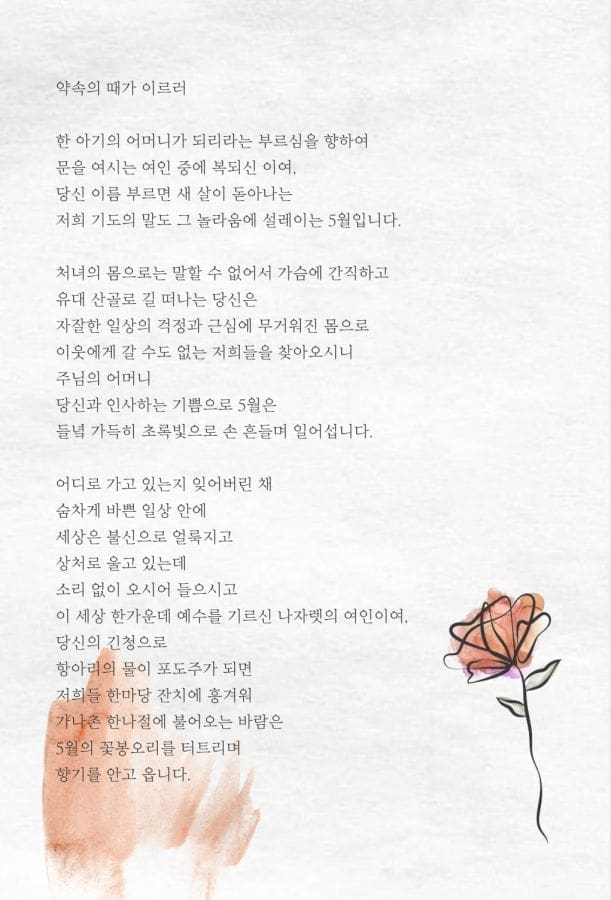 약속의 때가 이르러
한 아기의 어머니가 되리라는 부르심을 향하여
문을 여시는 여인 중에 복되신 이여,
당신 이름 부르면 새 살이 돋아나는
저희 기도의 말도 그 놀라움에 설레이는 5월입니다.
처녀의 몸으로는 말할 수 없어서 가슴에 간직하고
유대 산골로 길 떠나는 당신은
자잘한 일상의 걱정과 근심에 무거워진 몸으로
이웃에게 갈 수도 없는 저희들을 찾아오시니
주님의 어머니
당신과 인사하는 기쁨으로 5월은
들녘 가득히 초록빛으로 손 흔들며 일어섭니다.
어디로 가고 있는지 잊어버린 채
숨차게 바쁜 일상 안에
세상은 불신으로 얼룩지고
상처로 울고 있는데
소리 없이 오시어 들으시고
이 세상 한가운데 예수를 기르신 나자렛의 여인이여,
당신의 긴청으로
항아리의 물이 포도주가 되면
저희들 한마당 잔치에 흥겨워
가나촌 한나절에 불어오는 바람은
5월의 꽃봉오리를 터트리며
향기를 안고 옵니다.